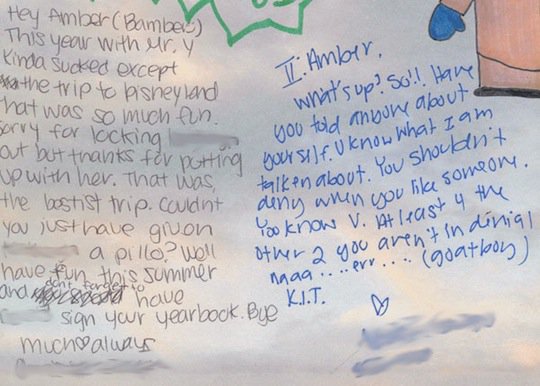 Hey Amber (Bamber)
This year with Mr. Y
kinda sucked except
the trip to Disneyland
that was so much fun.
sorry for locking
out but thanks for putting
up with her. That was
the bostist trip. Couldnt
you just have given
a pillo? Well
have fun this summer
and dont forget to have
sign your yearbook. Bye
much♡always
II. Amber,
what's up? So!! Have
you told anyone about
yourself. U know what I am
talken about. You shouldn't
deny when you like someone.
Too know V. At least 4 the
other 2 you aren't in dinial
naaa.....err.... (goatboy)
K.I.T.
♡